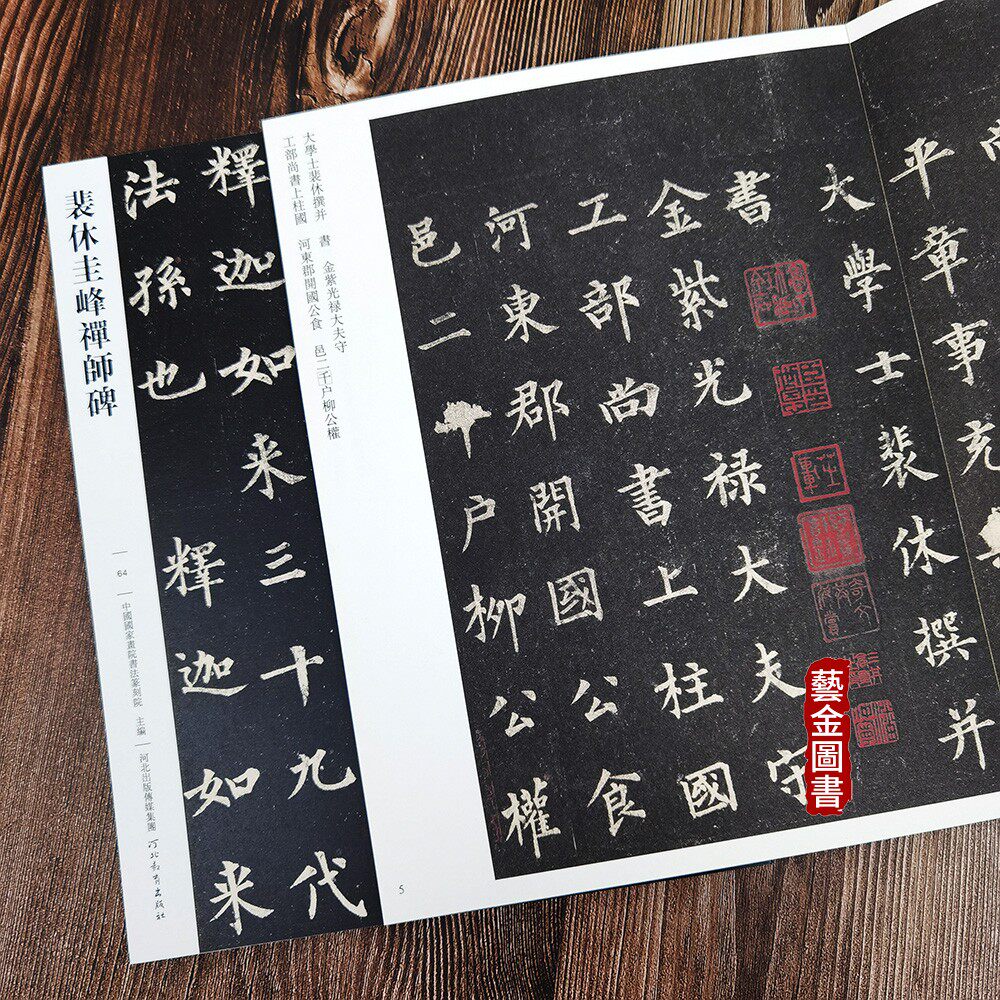 裴休圭峰禪師碑
64
中國國家畫院書法篆刻院 主編
河北出版傳媒集團 河北教育出版社
釋迦如来三十九代
法孫也 釋迦如来
大學士裴休撰并 書 金紫光禄大夫守
工部尚書上柱國 河東郡開國公食 邑二千户柳公權
平章事充
大學士裴休撰并
書
金紫光禄大夫守
工部尚書上柱國
河東郡開國公食
邑二千户柳公權
藝金圖書
5